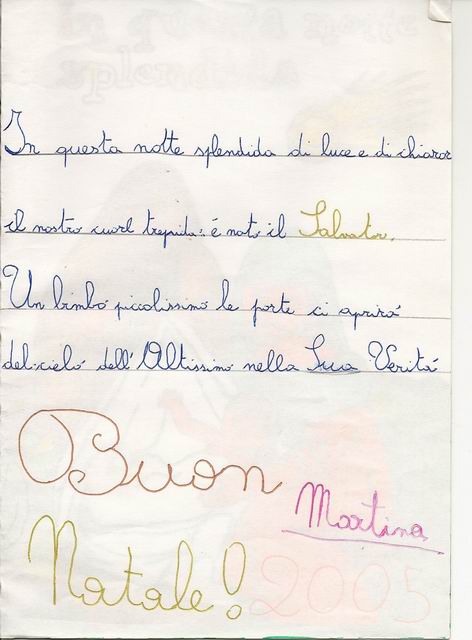 In questa notte splendida di luce e di chiaror
il nostro cuore trepida: é nato il Salvator.
Un bimbo piccolissimo le porte ci aprirá
del cieló dell'Altissimo nella Sua Veritá
Buon
Martina
Natale! 2005